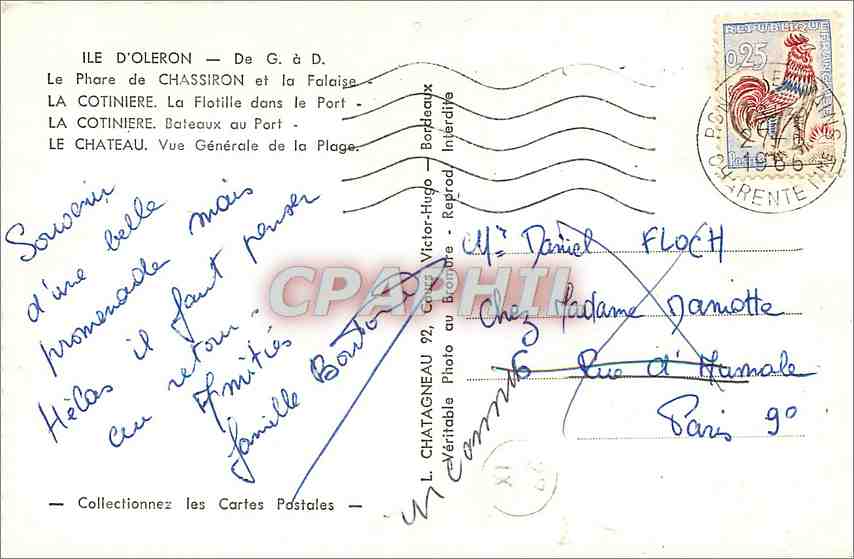 ILE D'OLERON — De G. à D.
Le Phare de CHASSIRON et la Falaise -
LA COTINIERE. La Flotille dans le Port -
LA COTINIERE. Bateaux au Port -
LE CHATEAU. Vue Générale de la Plage.
Souvenir
d'une belle
promenade mais
Hélas il faut penser
au retour.
Amitiés
famille
— Collectionnez les Cartes Postales —
L. CHATAGNEAU 92, Cours Victor-Hugo — Bordeaux
Véritable Photo au Bromure - Reprod. Interdite
REPUBLIQUE FRANÇAISE
0,25
1966
CHARENTE Mme
Mr Daniel FLOCH
Chez Madame
6 Rue d'Aumale
Paris 9°
inconnu
XI
CPAPHIL